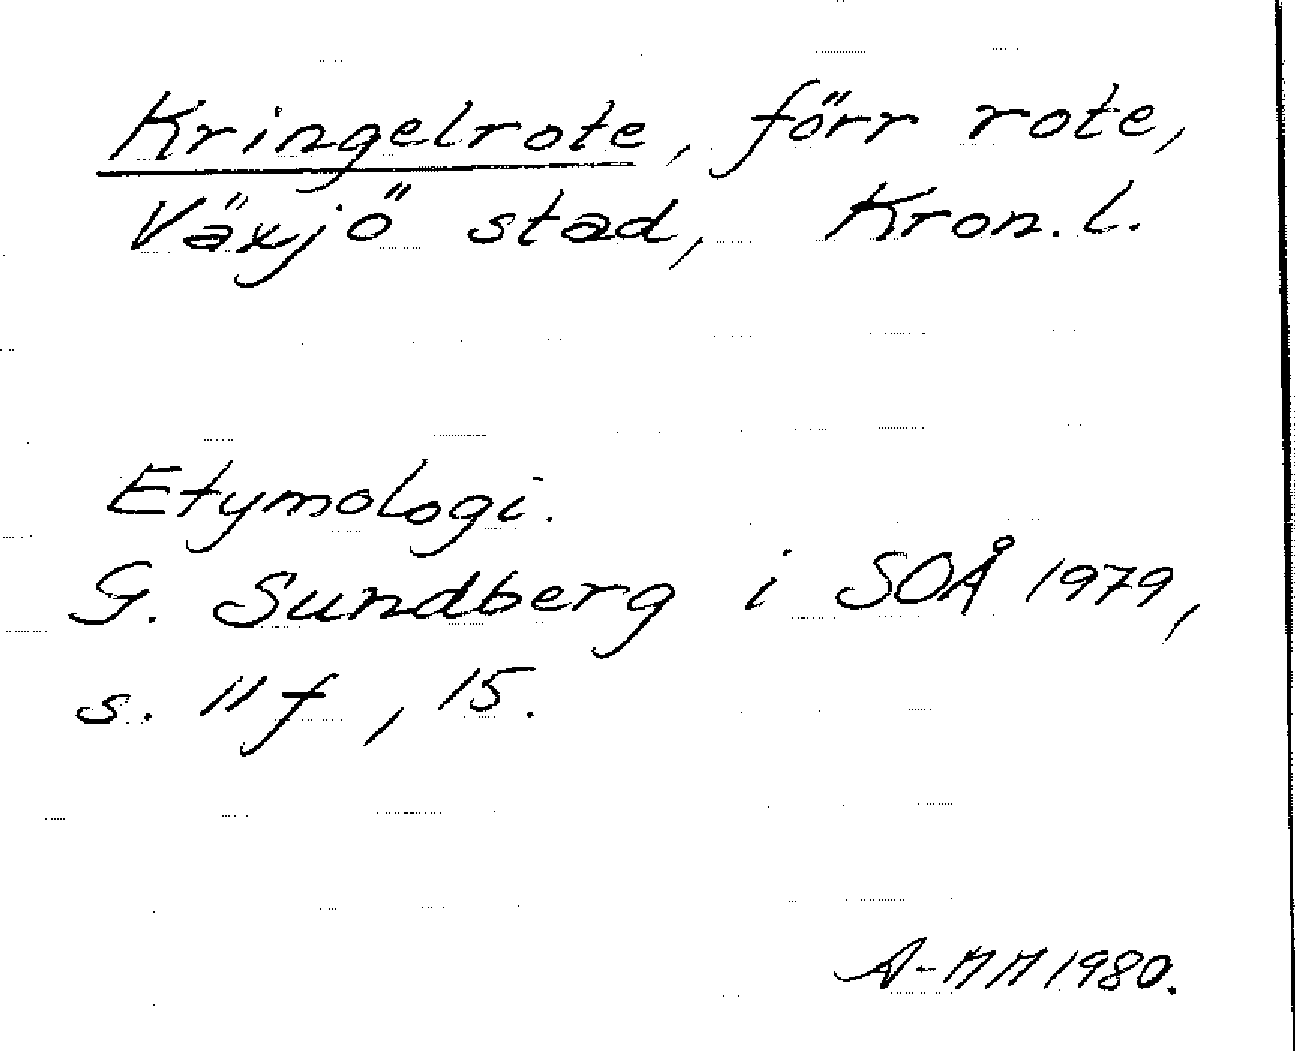 Kringelrote, förr rote,
Växjö stad, Kron. l.
Etymologi.
G. Sundberg i SOÅ 1979,
s. 11 f, 15.
A-MM 1980.